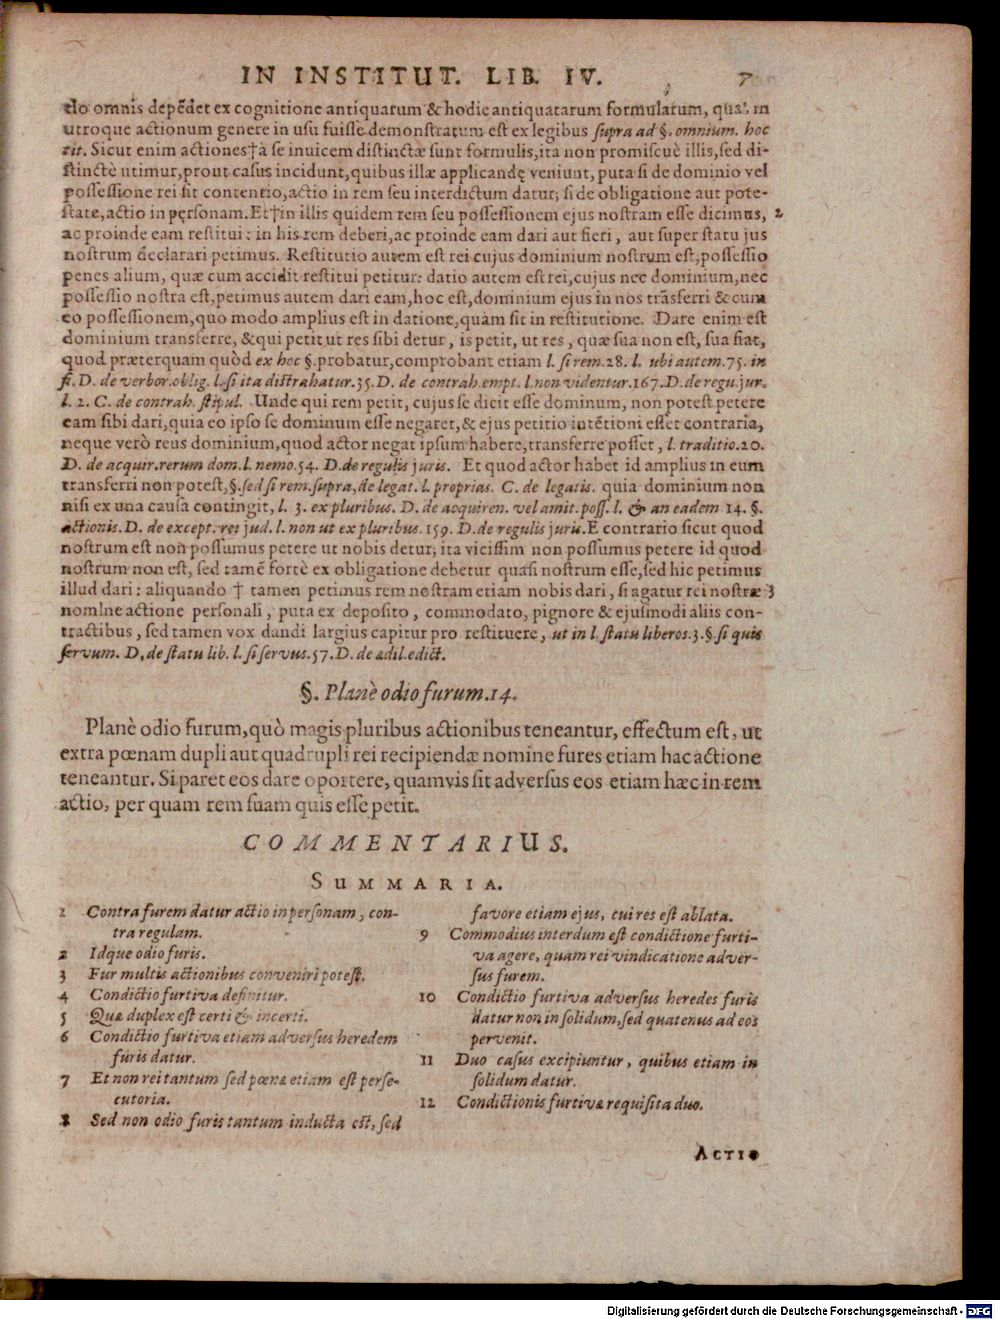 IN INSTITUT. LIB. IV. 7
do omnis depẽdet ex cognitione antiquarum & hodie antiquatarum formularum, quas in
utroque actionum genere in usu fuisse demonstratum est ex legibus supra ad §. omnium. hoc
tit. Sicut enim actiones†à se invicem distinctæ sunt formulis,ita non promiscuè illis,sed di-
stinctè utimur,prout casus incidunt,quibus illæ applicandę veniunt, puta si de dominio vel
possessione rei sit contentio,actio in rem seu interdictum datur; si de obligatione aut pote-
state,actio in pęrsonam.Et†in illis quidem rem seu possessionem ejus nostram esse dicimus, 2
ac proinde eam restitui: in his rem deberi,ac proinde eam dari aut fieri, aut super statu jus
nostrum declarari petimus. Restitutio autem est rei cujus dominium nostrum est,possessio
penes alium, quæ cum accidit restitui petitur: datio autem est rei,cujus nec dominium,nec
possessio nostra est,petimus autem dari eam,hoc est,dominium ejus in nos trãsferri & cum
eo possessionem,quo modo amplius est in datione,quàm sit in restitutione. Dare enim est
dominium transferre, &qui petit ut res sibi detur, is petit, ut res, quæ sua non est, sua fiat,
quod præterquam quòd ex hoc §.probatur,comprobant etiam l. si rem.28. l. ubi autem.75. in
fi. D. de verbor.oblig. l.si ita distrahatur.35.D. de contrah.empt. l.non videntur.167.D.de regu.jur.
l. 2. C. de contrah. stipul. Unde qui rem petit, cujus se dicit esse dominum, non potest petere
eam sibi dari,quia eo ipso se dominum esse negaret,& ejus petitio intẽtioni esset contraria,
neque verò reus dominium,quod actor negat ipsum habere,transferre posset, l. traditio.20.
D. de acquir.rerum dom.l. nemo.54. D.de regulis juris. Et quod actor habet id amplius in eum
transferri non potest,§.sed si rem.supra,de legat. l. proprias. C. de legatis. quia dominium non
nisi ex una causa contingit, l. 3. ex pluribus. D. de acquiren. vel amit.poss. l. & an eadem 14. §.
actionis.D. de except. rei jud. l. non ut ex pluribus. 159. D.de regulis juris.E contrario sicut quod
nostrum est non possumus petere ut nobis detur, ita vicissim non possumus petere id quod
nostrum non est, sed tamẽ fortè ex obligatione debetur quasi nostrum esse,sed hic petimus
illud dari: aliquando † tamen petimus rem nostram etiam nobis dari, si agatur rei nostræ 3
nomine actione personali, puta ex deposito, commodato, pignore & ejusmodi aliis con-
tractibus, sed tamen vox dandi largius capitur pro restituere, ut in l. statu liberos.3.§.si quis
servum. D. de statu lib. l. si servus.57.D. de ædil.edict.
§. Planè odio furum.14.
Planè odio furum,quò magis pluribus actionibus teneantur, effectum est, ut
extra pœnam dupli aut quadrupli rei recipiendæ nomine fures etiam hac actione
teneantur. Si paret eos dare oportere, quamvis sit adversus eos etiam hæc in rem
actio, per quam rem suam quis esse petit.
COMMENTARIUS.
SUMMARIA.
1 Contra furem datur actio in personam, con-
tra regulam.
2 Idque odio furis.
3 Fur multis actionibus conveniri potest.
4 Condictio furtiva definitur.
5 Quæ duplex est certi & incerti.
6 Condictio furtiva etiam adversus heredem
furis datur.
7 Et non rei tantum sed pœnæ etiam est perse-
cutoria.
8 Sed non odio furis tantum inducta est, sed
favore etiam ejus, cui res est ablata.
9 Commodius interdum est condictione furti-
va agere, quam rei vindicatione adver-
sus furem.
10 Condictio furtiva adversus heredes furis
datur non in solidum,sed quatenus ad eos
pervenit.
11 Duo casus excipiuntur, quibus etiam in
solidum datur.
12 Condictionis furtivæ requisita duo.
ACTIO
Digitalisierung gefördert durch die Deutsche Forschungsgemeinschaft - DFG